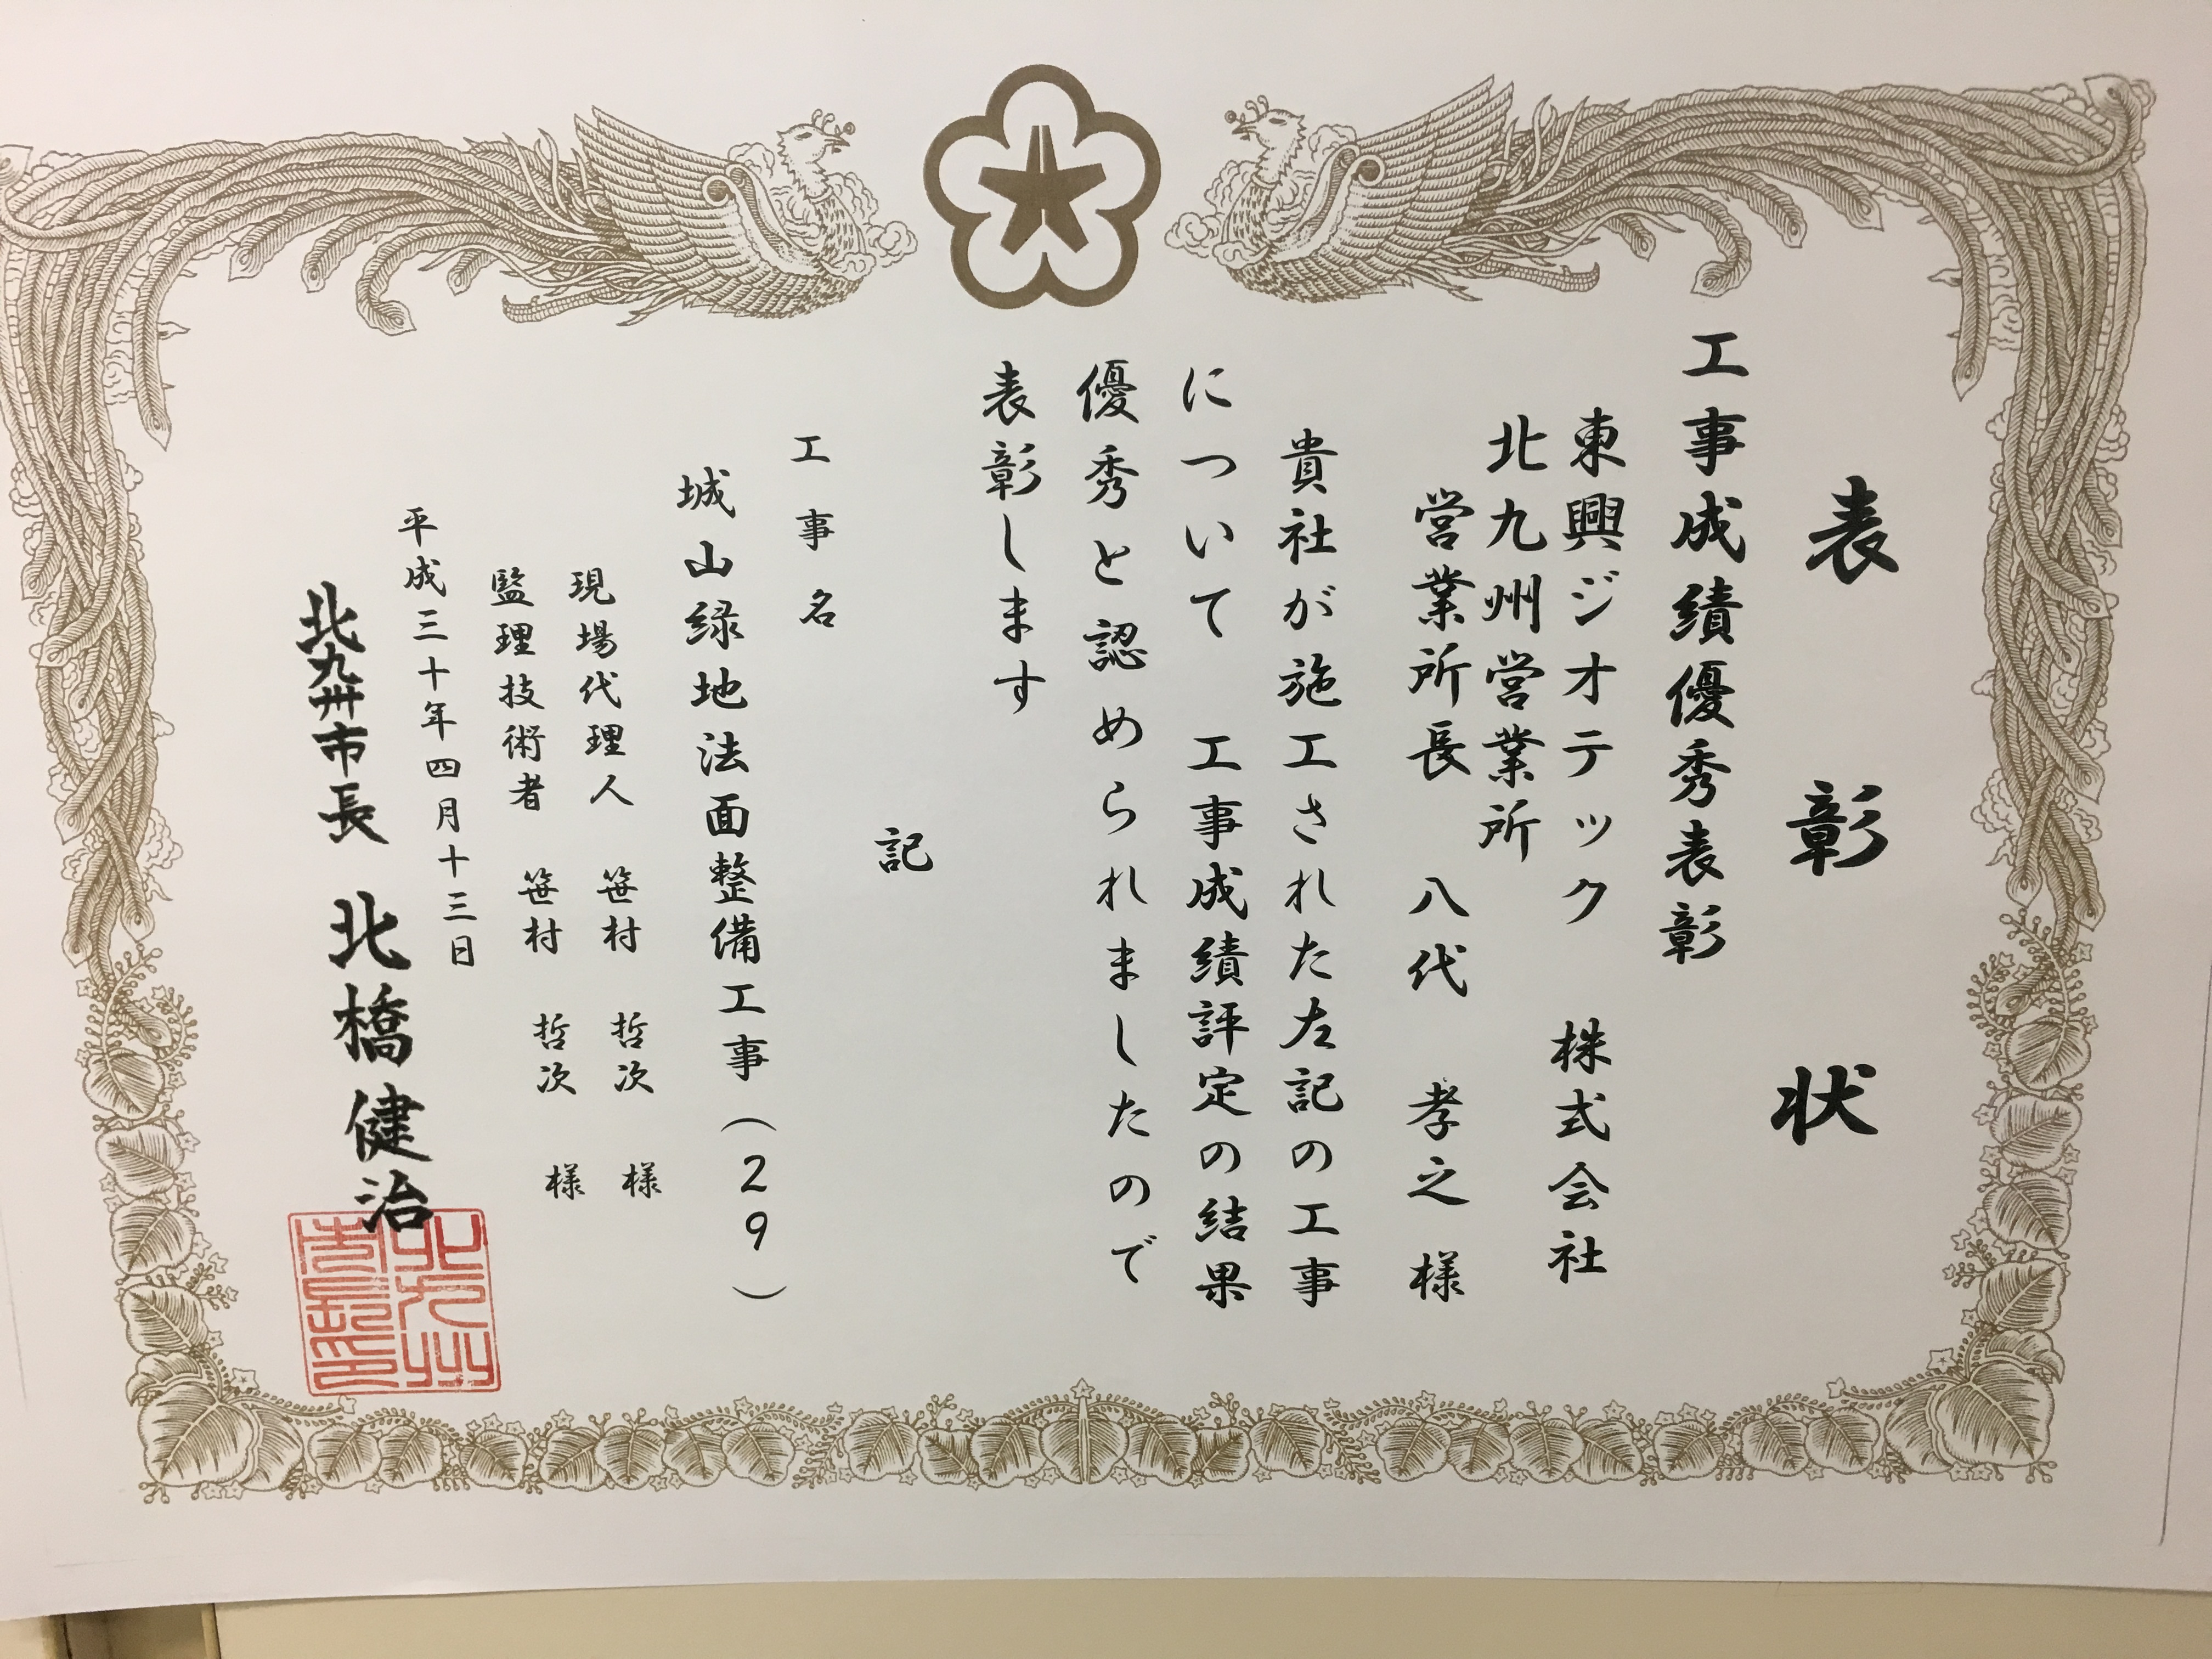 表彰状
工事成績優秀表彰
東興ジオテック　株式会社
北九州営業所
営業所長　八代　孝之　様
貴社が施工された左記の工事
について　工事成績評定の結果
優秀と認められましたので
表彰します
記
工事名
城山緑地法面整備工事（29）
現場代理人　笹村　哲次　様
監理技術者　笹村　哲次　様
平成三十年四月十三日
北九州市長　北橋健治
北九州
市長印